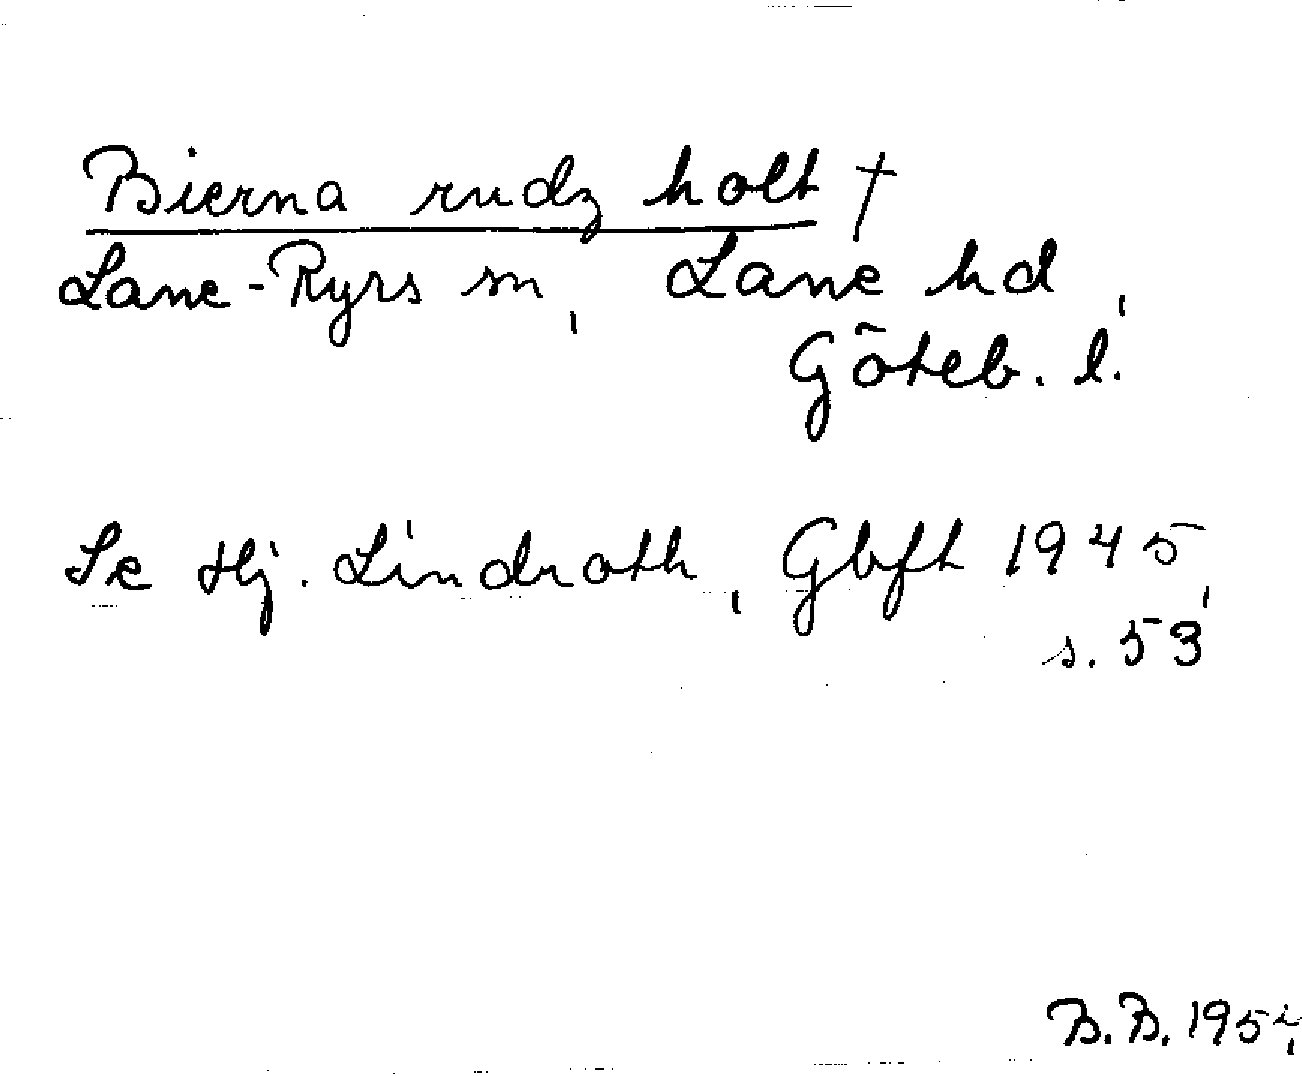 Bierna rudz holt †
Lane-Ryrs sn, Lane hd,
Göteb. l.
Se Hj. Lindroth, Gbft 1945,
s. 53
B.B.